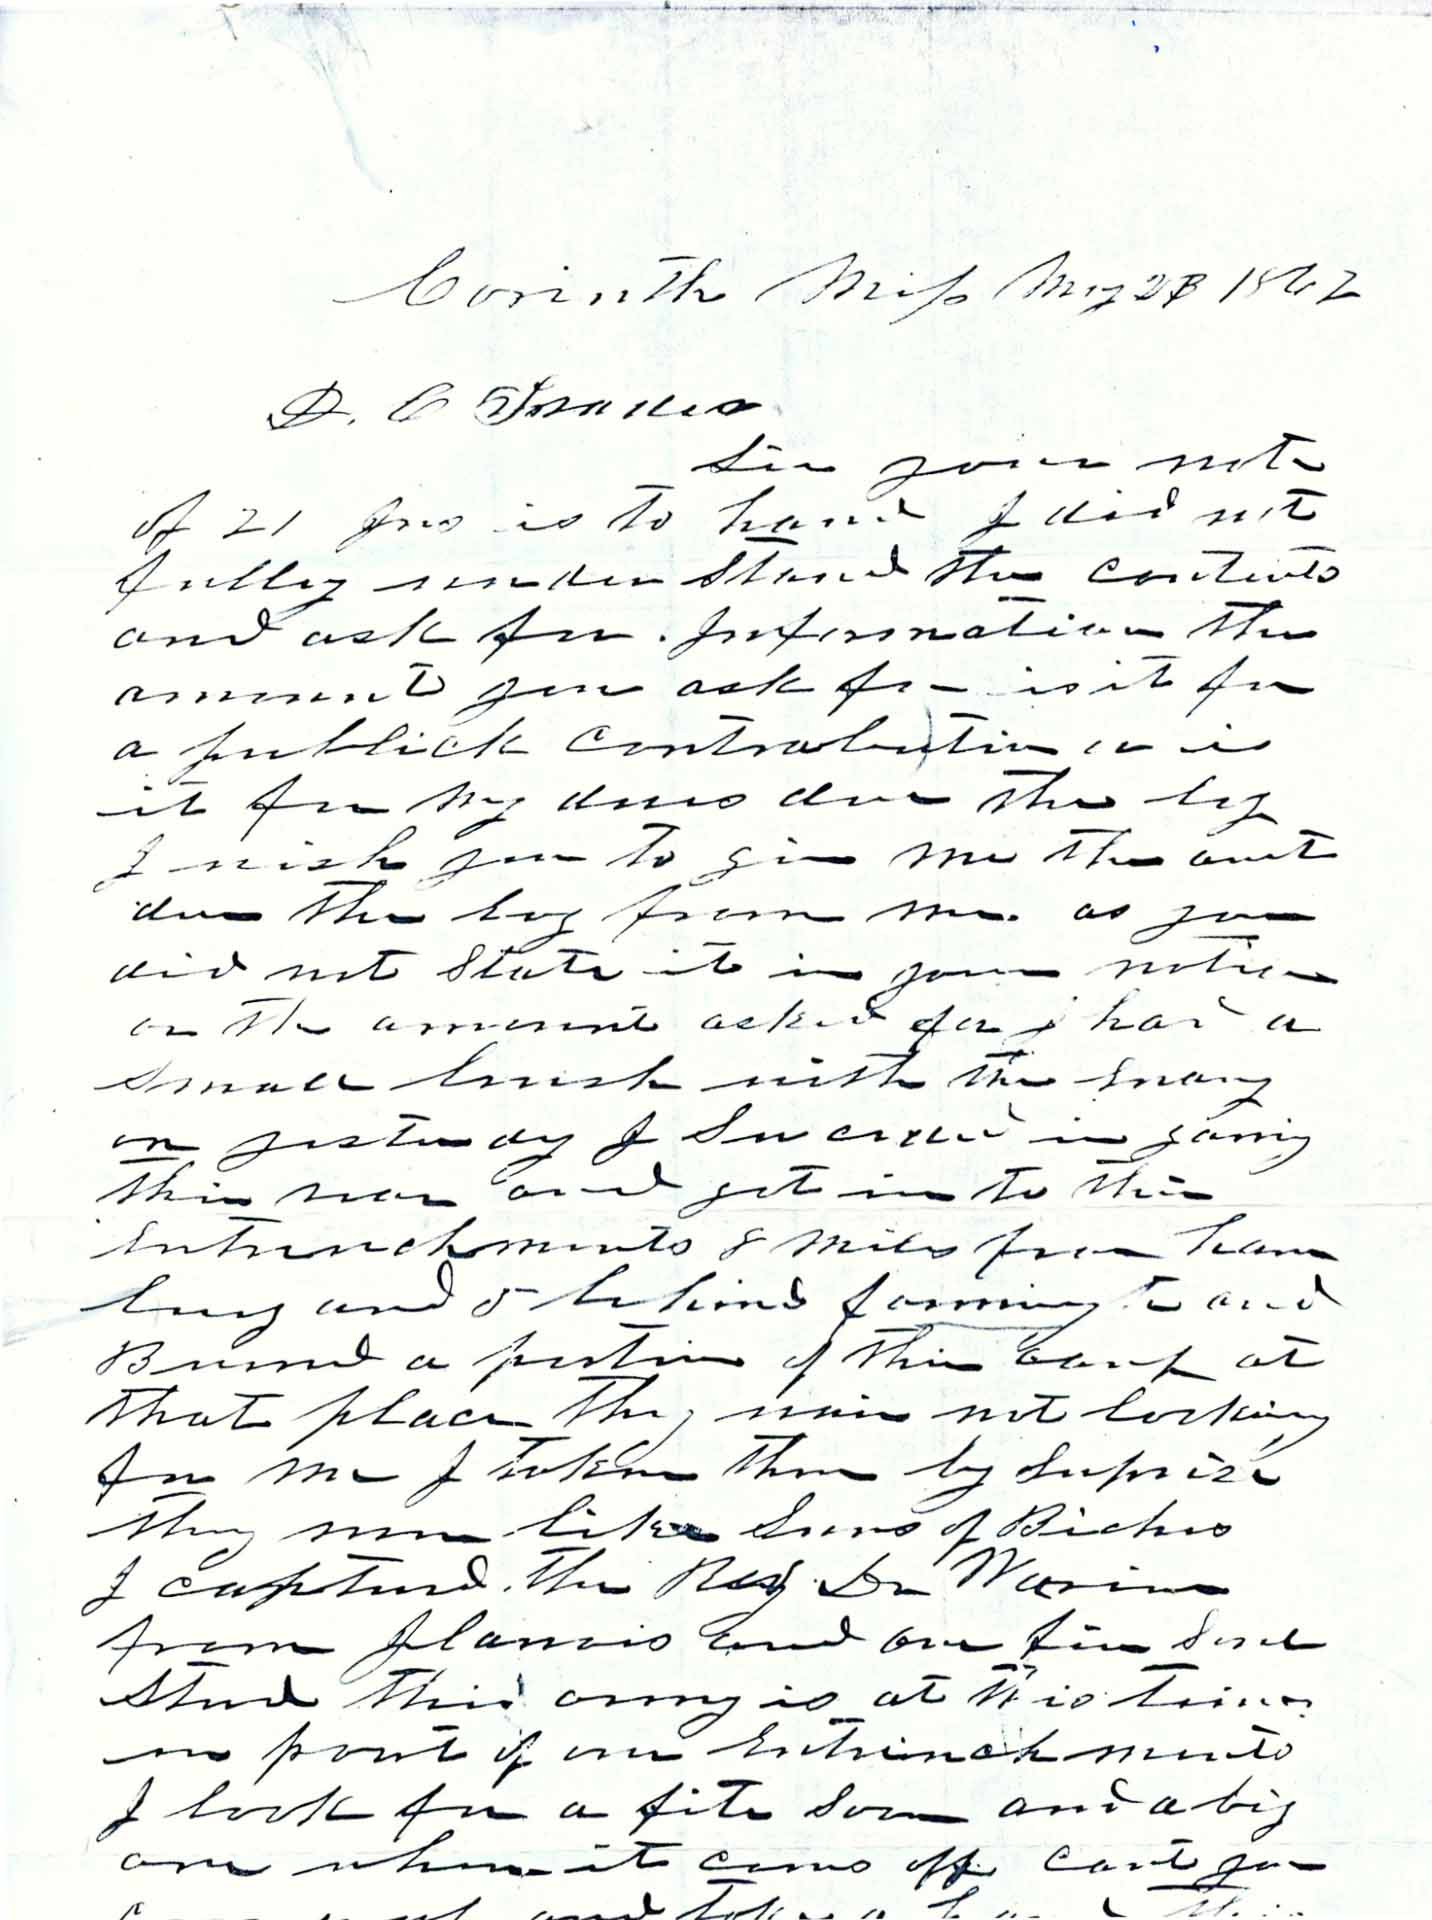 Corinth Miss May 23 1862
D. C. Trader
Sir your note
of 21 Ins is to hand I did not
fully under Stand the contents
and ask for . Information the
amount you ask for is it for
a publick contrabution or is
it for My dues due the log
I wish you to give me the amt
due the Log from me. as you
did not State it in your notice
or the amount asked for I had a
small brush with the Enamy
on yesterday I Suceded in gaining
thir rear and got in to thir
Entrenchments 8 miles from ham
burg and 5 behind farmington and
Burned a portion of thir camp at
that place they wair not looking
for me I taken them by Suprise
they run like Suns of Biches
I captured the Rev Dr Warin
from Ilanois and one fin Sorel
Stud this army is at this time
in front of our Entrinchments
I look for a fite Soon and a big
one when it coms off cant you
and take a hand